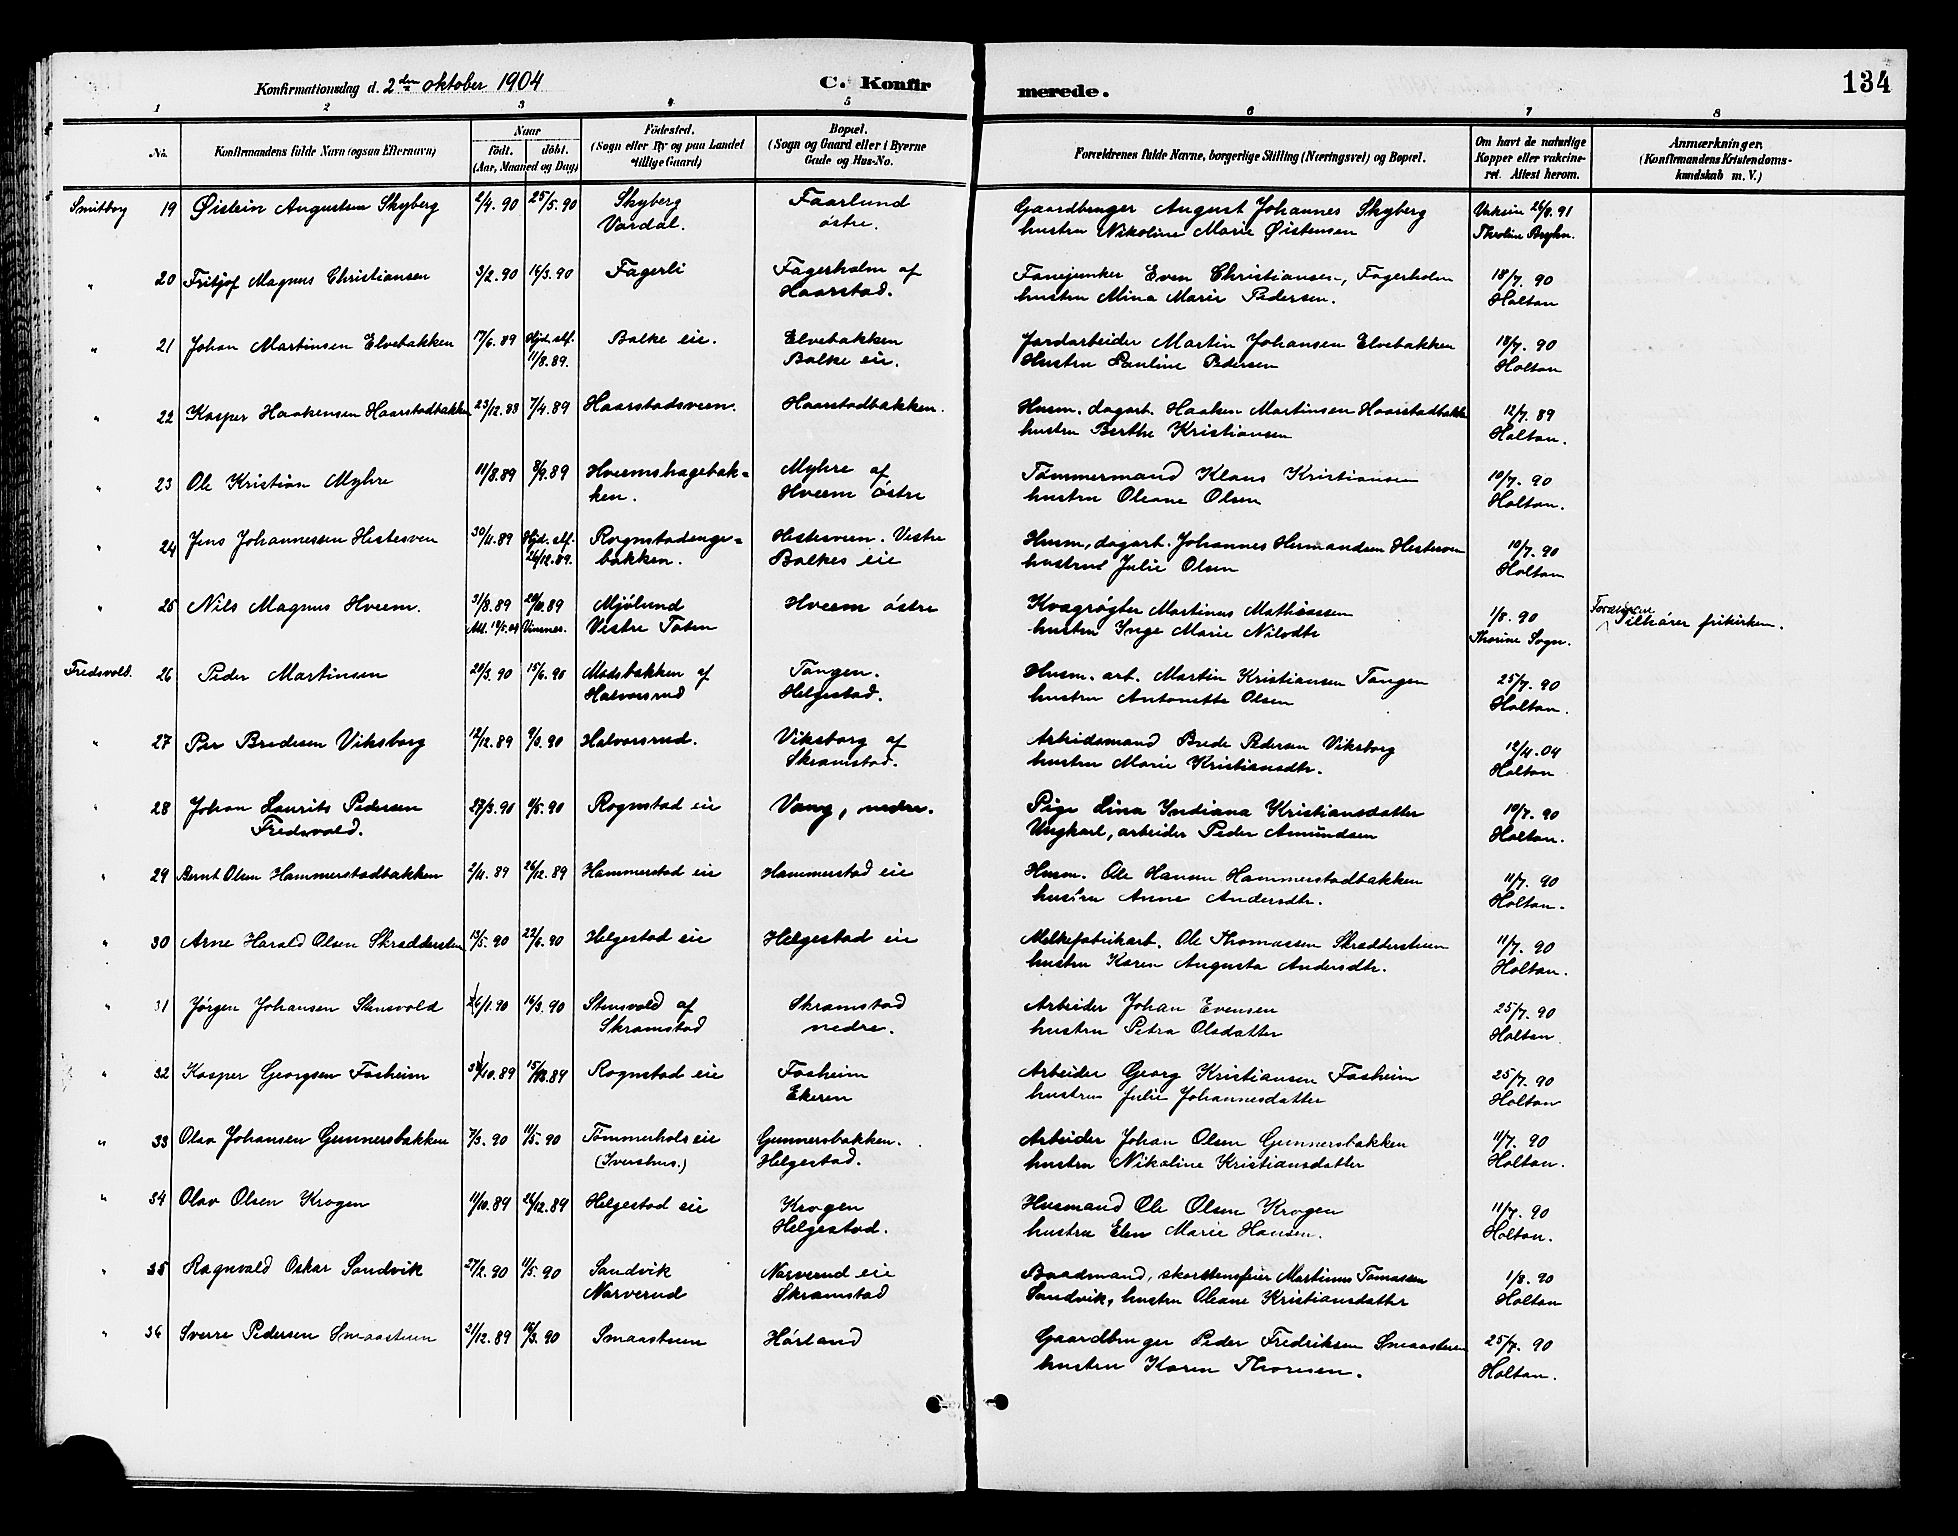 Konfirmationsdag d. 2den oktober 1904
C. Konfir
merede.
134
1 2 3 4 5 6 7 8
No.
Konfirmandens fulde Navn (ogsaa Efternavn)
Naar
födt. döbt.
(Aar, Maaned og Dag)
Födested.
(Sogn eller By og paa Landet
tillige Gaard)
Bopæl.
(Sogn og Gaard eller i Byerne
Gade og Hus-No.
Forældrenes fulde Navne, borgerlige Stilling (Næringsvei) og Bopæl.
Om havt de naturlige
Kopper eller vakcine-
ret. Attest herom.
Anmærkninger.
(Konfirmandens Kristendoms-
kundskab m. V.)
19 Øistein Augustsen Skyberg 2/4. 90 25/5. 90 Skyberg Faarlund Gaardbruger August Johannes Skyberg 26/8. 91
Vardal. östre. hustru Nikoline Marie Øistensen
" 20 Fritjof Magnus Christiansen 3/2. 90 16/3. 90 Fagerli Fagerholm af Fanejunker Even Christiansen, Fagerholm 18/7. 90
Haarstad. hustru Mina Marie Pedersen. Holtan
" 21 Johan Martinsen Elvebakken 17/6. 89 Hjd. alf. Balke eie. Elvebakken Jordarbeider Martin Johansen Elvebakken 18/7. 90
11/8.89. Balke eie. Hustru Pauline Pedersen Holtan
" 22 Kasper Haakensen Haarstadbakken 23/12. 88 7/4. 89 Haarstadsveen. Haarstadbakken. Husm. dagarb. Haaken Martinsen Haarstadbakk 12/7. 89
hustru Berthe Kristiansen Holtan.
" 23 Ole Kristian Myhre 11/8.89 8/9.89 Hveemshagebak= Myhre af Tømmermand Klaus Kristiansen 10/7. 90
ken. Hveem östre hustru Oleane Olsen Holtan.
" 24 Jens Johannessen Hestesven 30/11.89 Hjd. alf. Rognstadenge= Hestesveen. Vestre Husm, dagarb. Johannes Hermandsen Hestesven 10/7. 90
26/12.89. bakken. Balkes eie hustru Julie Olsen Holtan
" 25 Nils Magnus Hveem. 31/8.89 20/10.89 Mjølund Hveem östre Kvægrøgter Martinus Mathiassen 1/8. 90 Forældrene
Vestre Toten hustru Inge Marie Nilsdtr Thorine Sogn. tilhører frikirken.
Fredsvold. 26 Peder Martinsen 20/3. 90 15/6. 90 Madsbakken af Tangen. Husm. arb. Martin Kristiansen Tangen 25/7. 90
Halvorsrud Helgestad. hustru Antonette Olsen Holtan.
" 27 Per Bredesen Viksborg 12/12. 89 9/3. 90 Halvorsrud. Viksborg af Arbeidsmand Brede Pedersen Viksborg 12/4. 04
Skramstad. hustru Marie Kristiansdtr. Holtan
" 28 Johan Laurits Pedersen 27/3. 90 4/5. 90 Rognstad eie Vang, nedre. Pige Lina Indiana Kristiansdatter 10/7. 90
Fredsvold. Ungkarl, arbeider Peder Amundsen Holtan.
" 29 Bernt Olsen Hammerstadbakken 2/11. 89 26/12. 89 Hammerstad eie Hammerstad eie Husm. Ole Hansen Hammerstadbakken 11/7. 90
hustru Anne Andersdtr. Holtan.
" 30 Arne Harald Olsen Skræddersten 13/5. 90 22/6. 90 Helgestad eie Helgestad eie Melkefabrikarb. Ole Thomassen Skrædderstuen 11/7. 90
hustru Karen Augusta Andersdtr. Holtan.
" 31 Jörgen Johansen Stensvold 1. 90 16/3. 90 Stensvold af Skramstad Arbeider Johan Evensen 25/7. 90
Skramstad nedre. hustru Petra Olsdatter Holtan
" 32 Kasper Georgsen Fosheim 10.89 Rognstad eie Fosheim Arbeider Georg Kristiansen Fosheim 25/7. 90
Ekeren hustru Julie Johannesdatter Holtan
" 33 Olav Johansen Gunnersbakken 7/3. 90 11/5. 90 Tömmerhols eie Gunnersbakken. Arbeider Johan Olsen Gunnersbakken 11/7. 90
(Ivershus.) Helgestad. hustru Nikoline Kristiansdatter Holtan.
" 34 Olav Olsen Krogen 11/10. 89 26/12. 89 Helgestad eie Krogen Husmand Ole Olsen Krogen 11/7. 90
Helgestad. hustru Elen Marie Hansen. Holtan.
" 35 Ragnvald Oskar Sandvik 27/2. 90 11/5. 90 Sandvik Narverud eie Baadmand, skorstensfeier Martinus Tomassen 1/8. 90
Narverud Skramstad Sandvik, hustru Oleane Kristiansdatter Holtan
" 36 Sverre Pedersen Smaastuen 21/12. 89 16/3. 90 Smaastuen Hörland Gaardbruger Peder Fredriksen Smaastuen 25/7. 90
hustru Karen Thoresen. Holtan.